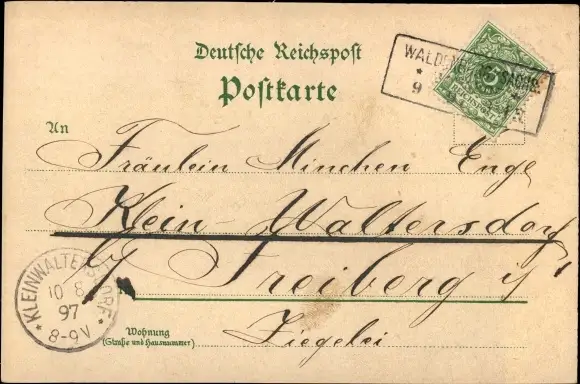 Deutsche Reichspost
Postkarte
WALDENBURG SACHS.
* 9
An
Fräulein Minchen Enge
Klein-Waltersdorf
Freiberg i/
KLEINWALTERSDORF
10 8
97
8-9V
Wohnung
(Straße und Hausnummer)
Ziegelei